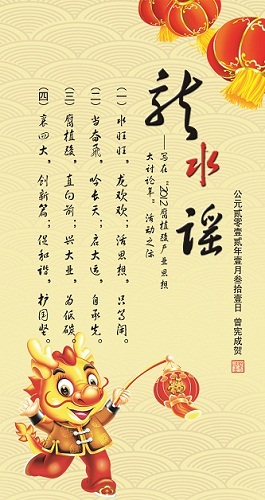 龙水谣
——写在“2012腐植酸产业思想
大讨论年”活动之际
（一）水旺旺，龙欢欢；活思想，只等闲。
（二）当奋飞，吟长天；启大运，自承先。
（三）腐植酸，直向前；兴大业，为低碳。
（四）哀四大，创新篇；促和谐，护国坚。
公元贰零壹贰年壹月叁拾壹日 曾宪成贺